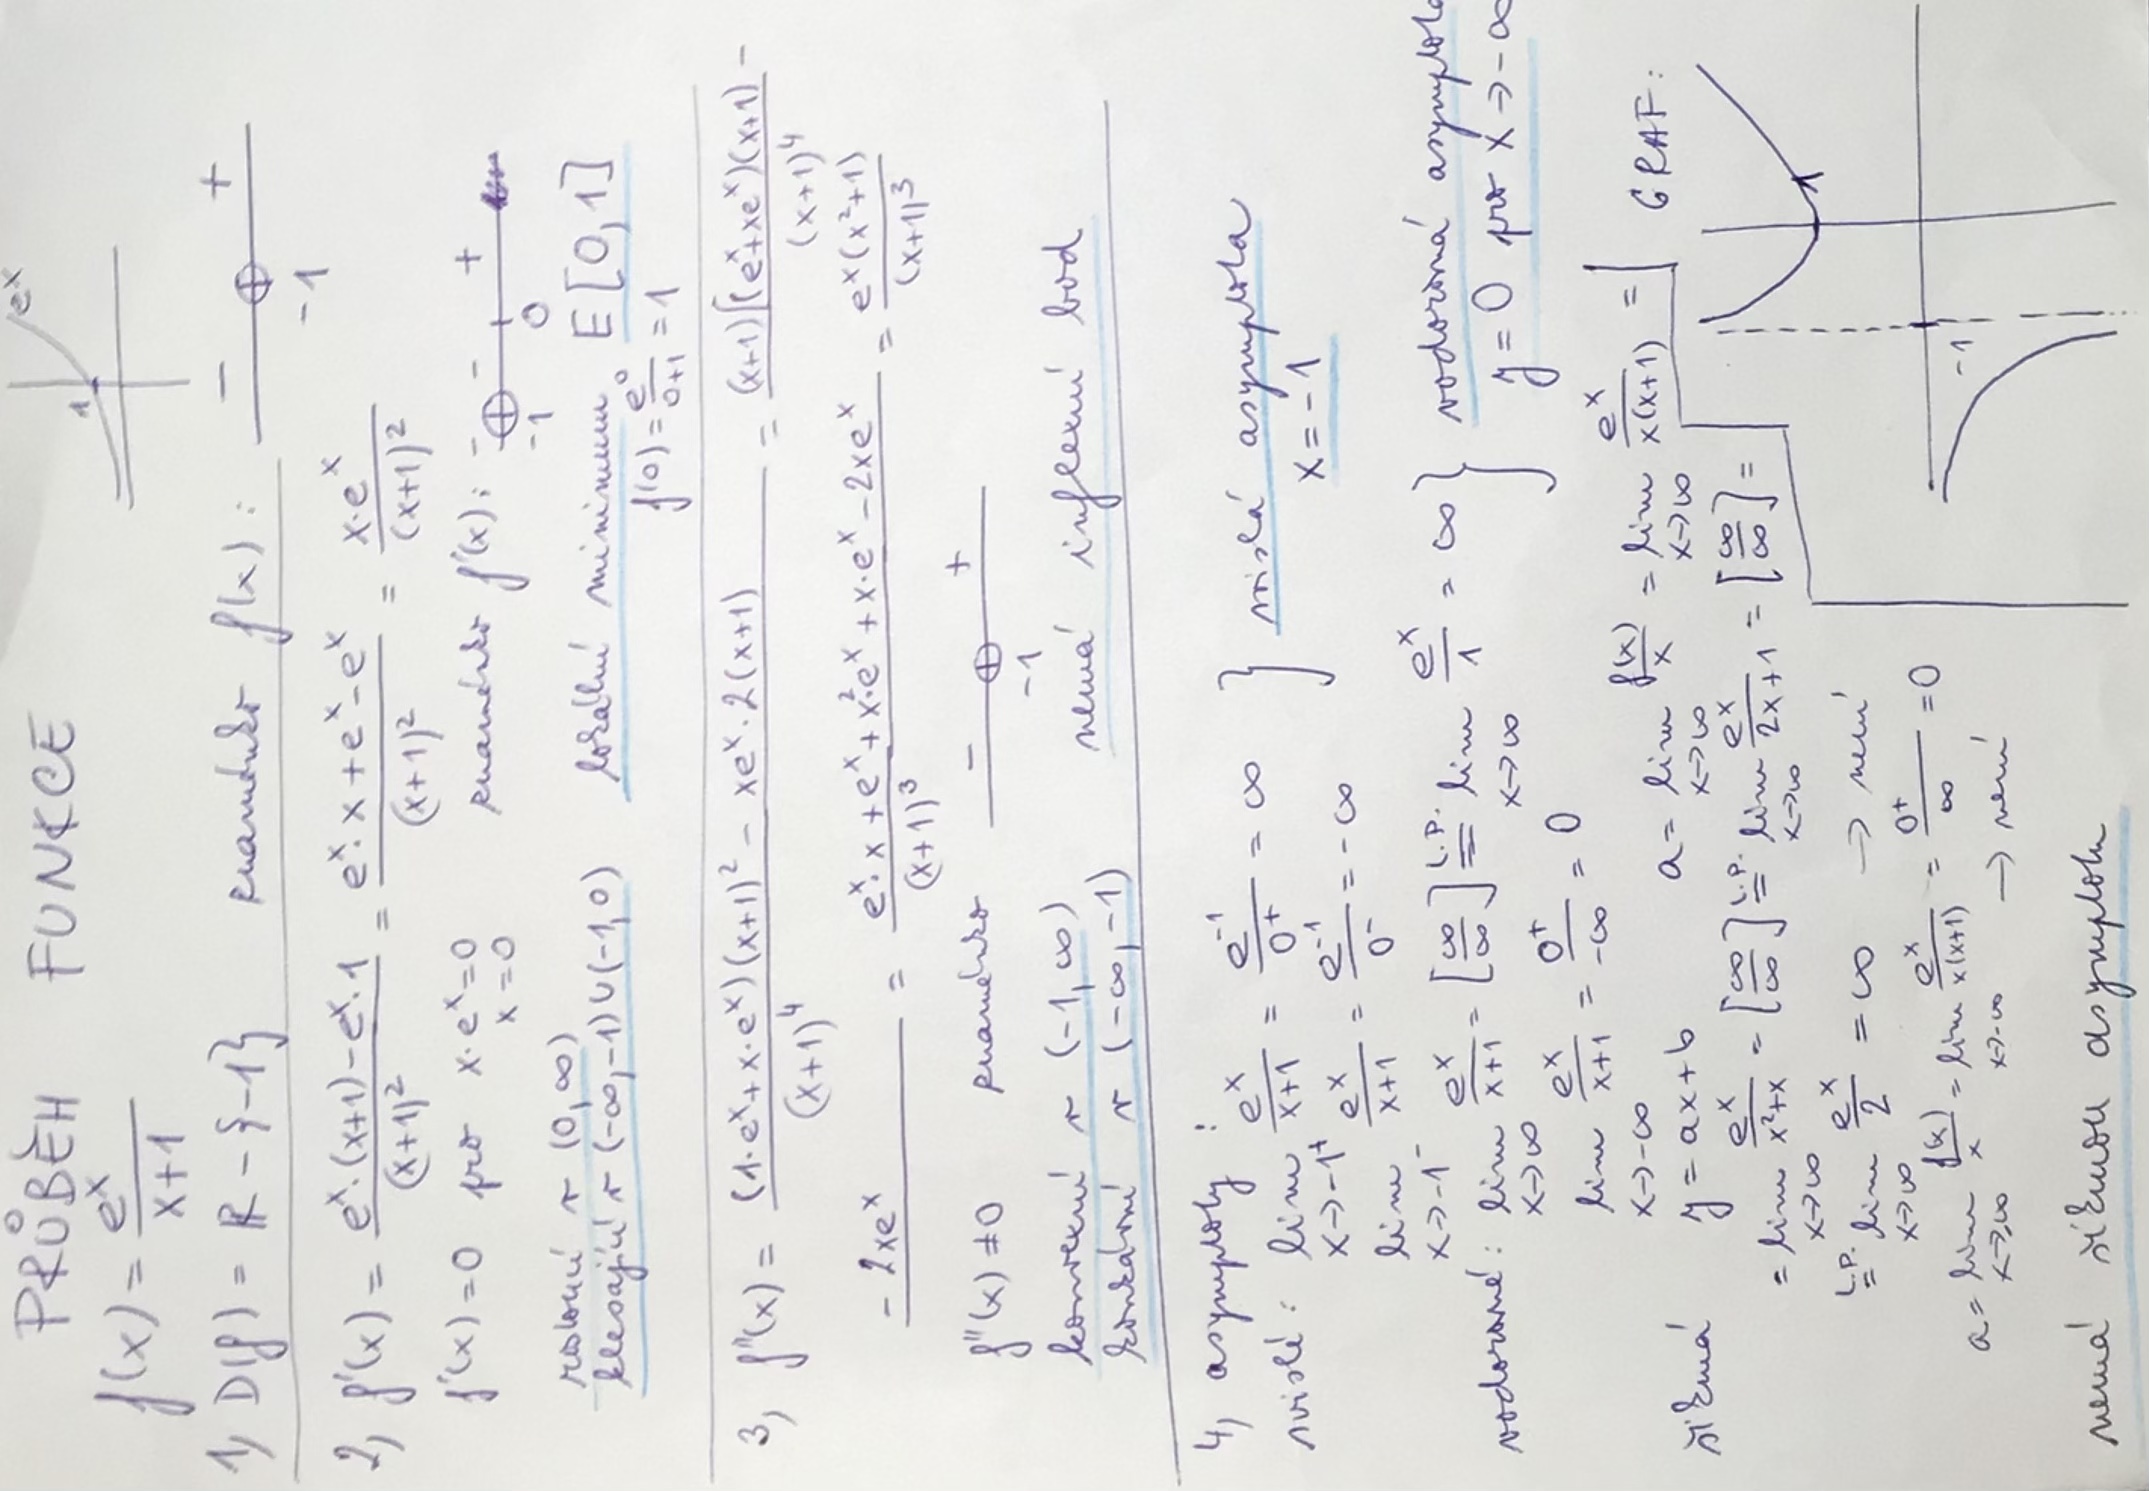 PRŮBĚH FUNKCE
e^x
1
f(x) = e^x / (x+1)
1) D(f) = R - {-1} znaménko f(x): - + -1
2) f'(x) = (e^x·(x+1) - e^x·1) / (x+1)^2 = (e^x·x + e^x - e^x) / (x+1)^2 = x·e^x / (x+1)^2
f'(x) = 0 pro x·e^x = 0 znaménko f'(x): - - +
x = 0 -1 0
rostoucí v (0, ∞)
klesající v (-∞, -1) ∪ (-1, 0) lokální minimum E [0, 1]
f(0) = e^0 / (0+1) = 1
3) f''(x) = ((1·e^x + x·e^x)(x+1)^2 - xe^x·2(x+1)) / (x+1)^4 = (x+1)[(e^x + xe^x)(x+1) - / (x+1)^4
- 2xe^x = (e^x·x + e^x + x^2·e^x + x·e^x - 2xe^x) / (x+1)^3 = e^x(x^2+1) / (x+1)^3
f''(x) ≠ 0 znaménko - + -1
konvexní v (-1, ∞) nemá inflexní bod
konkávní v (-∞, -1)
4) asymptoty:
svislé: lim x→-1^+ e^x / (x+1) = e^-1 / 0^+ = ∞ } svislá asymptota
x = -1
lim x→-1^- e^x / (x+1) = e^-1 / 0^- = -∞
vodorovné: lim x→∞ e^x / (x+1) = [∞/∞] L.P. = lim x→∞ e^x / 1 = ∞ } vodorovná asymptota
y = 0 pro x→-∞
lim x→-∞ e^x / (x+1) = 0^+ / -∞ = 0
šikmá y = ax + b a = lim x→∞ f(x) / x = lim x→∞ e^x / (x(x+1)) =
= lim x→∞ e^x / (x^2+x) = [∞/∞] L.P. = lim x→∞ e^x / (2x+1) = [∞/∞] =
L.P. = lim x→∞ e^x / 2 = ∞ → není
a = lim x→-∞ f(x) / x = lim x→-∞ e^x / (x(x+1)) = 0^+ / ∞ = 0
→ není
nemá šikmou asymptotu
GRAF:
1
-1